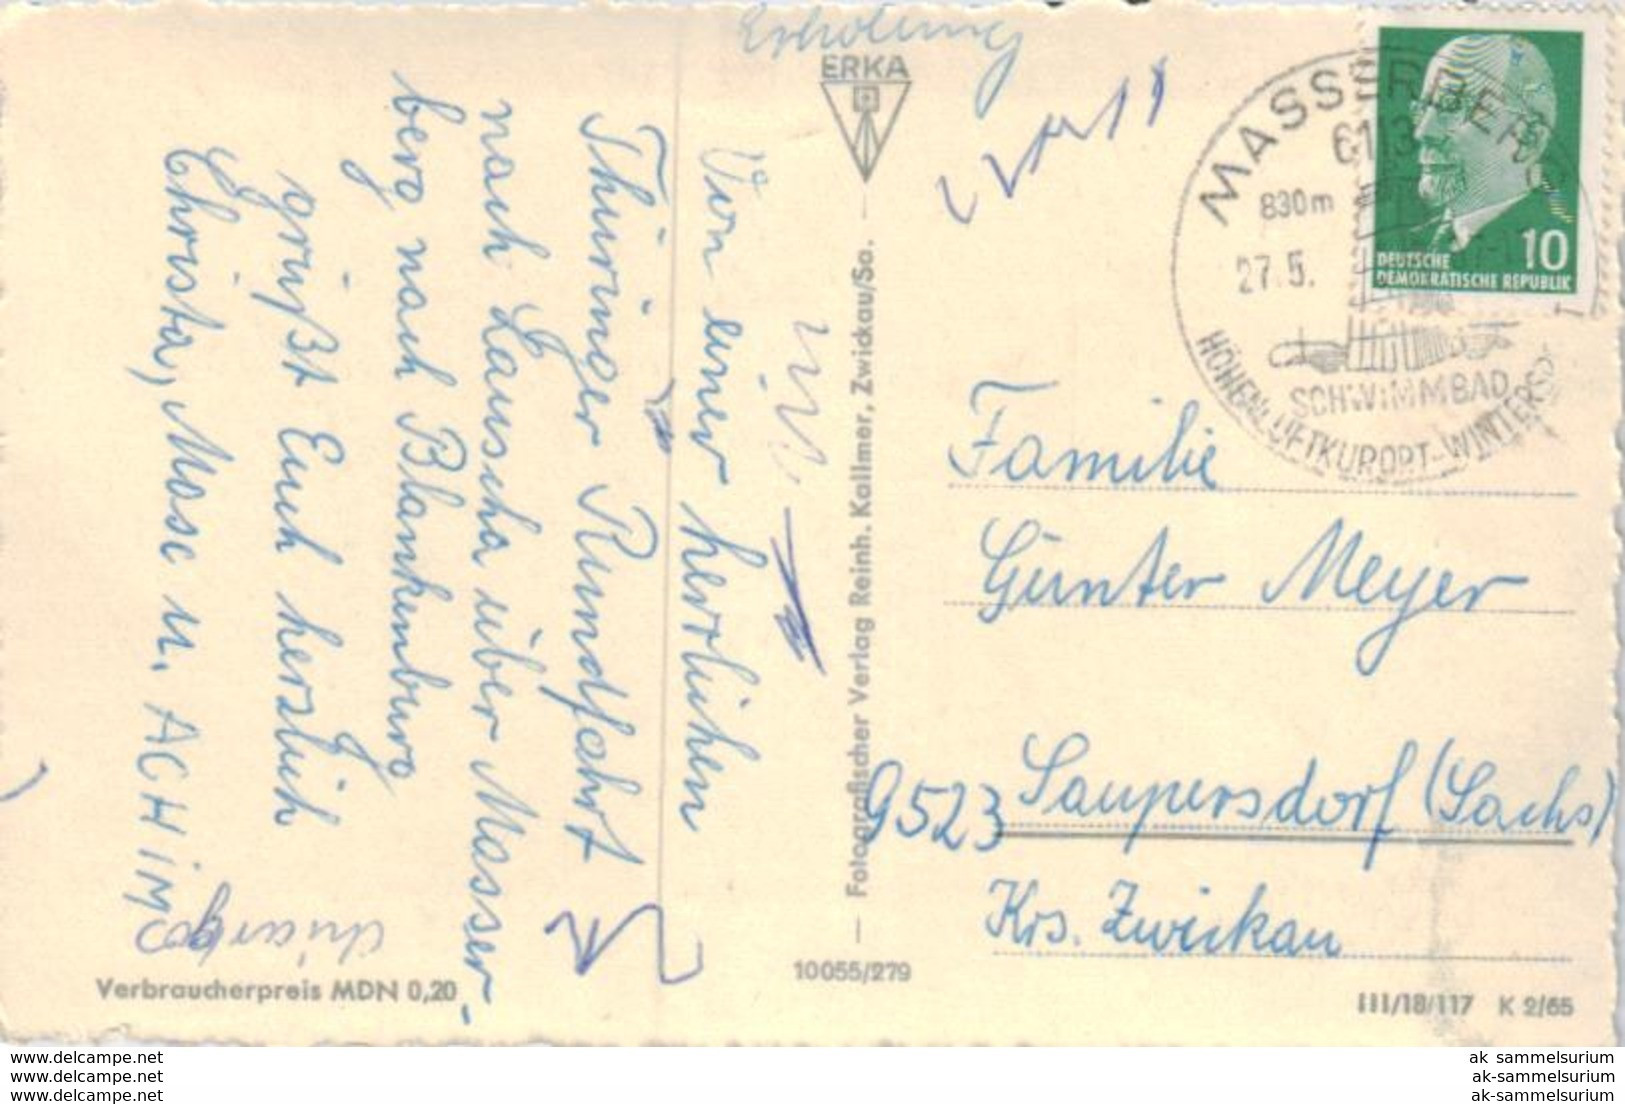 Erholung
ERKA
Von einer herrlichen
Thüringer Rundfahrt
nach Lauscha über Masser-
berg nach Blankenburg
grüßt Euch herzlich
Christa, Mase u. ACHIM
Verbraucherpreis MDN 0,20
— Fotografischer Verlag Reinh. Kallmer, Zwickau/Sa. —
10055/279
MASSERBERG
830m
27.5.
SCHWIMMBAD
HÖHENLUFTKURORT-WINTERS
10
DEUTSCHE
DEMOKRATISCHE REPUBLIK
Familie
Günter Meyer
9523 Saupersdorf (Sachs)
Krs. Zwickau
III/18/117 K 2/65
www.delcampe.net
www.delcampe.net
www.delcampe.net
ak_sammelsurium
ak-sammelsurium
ak-sammelsurium